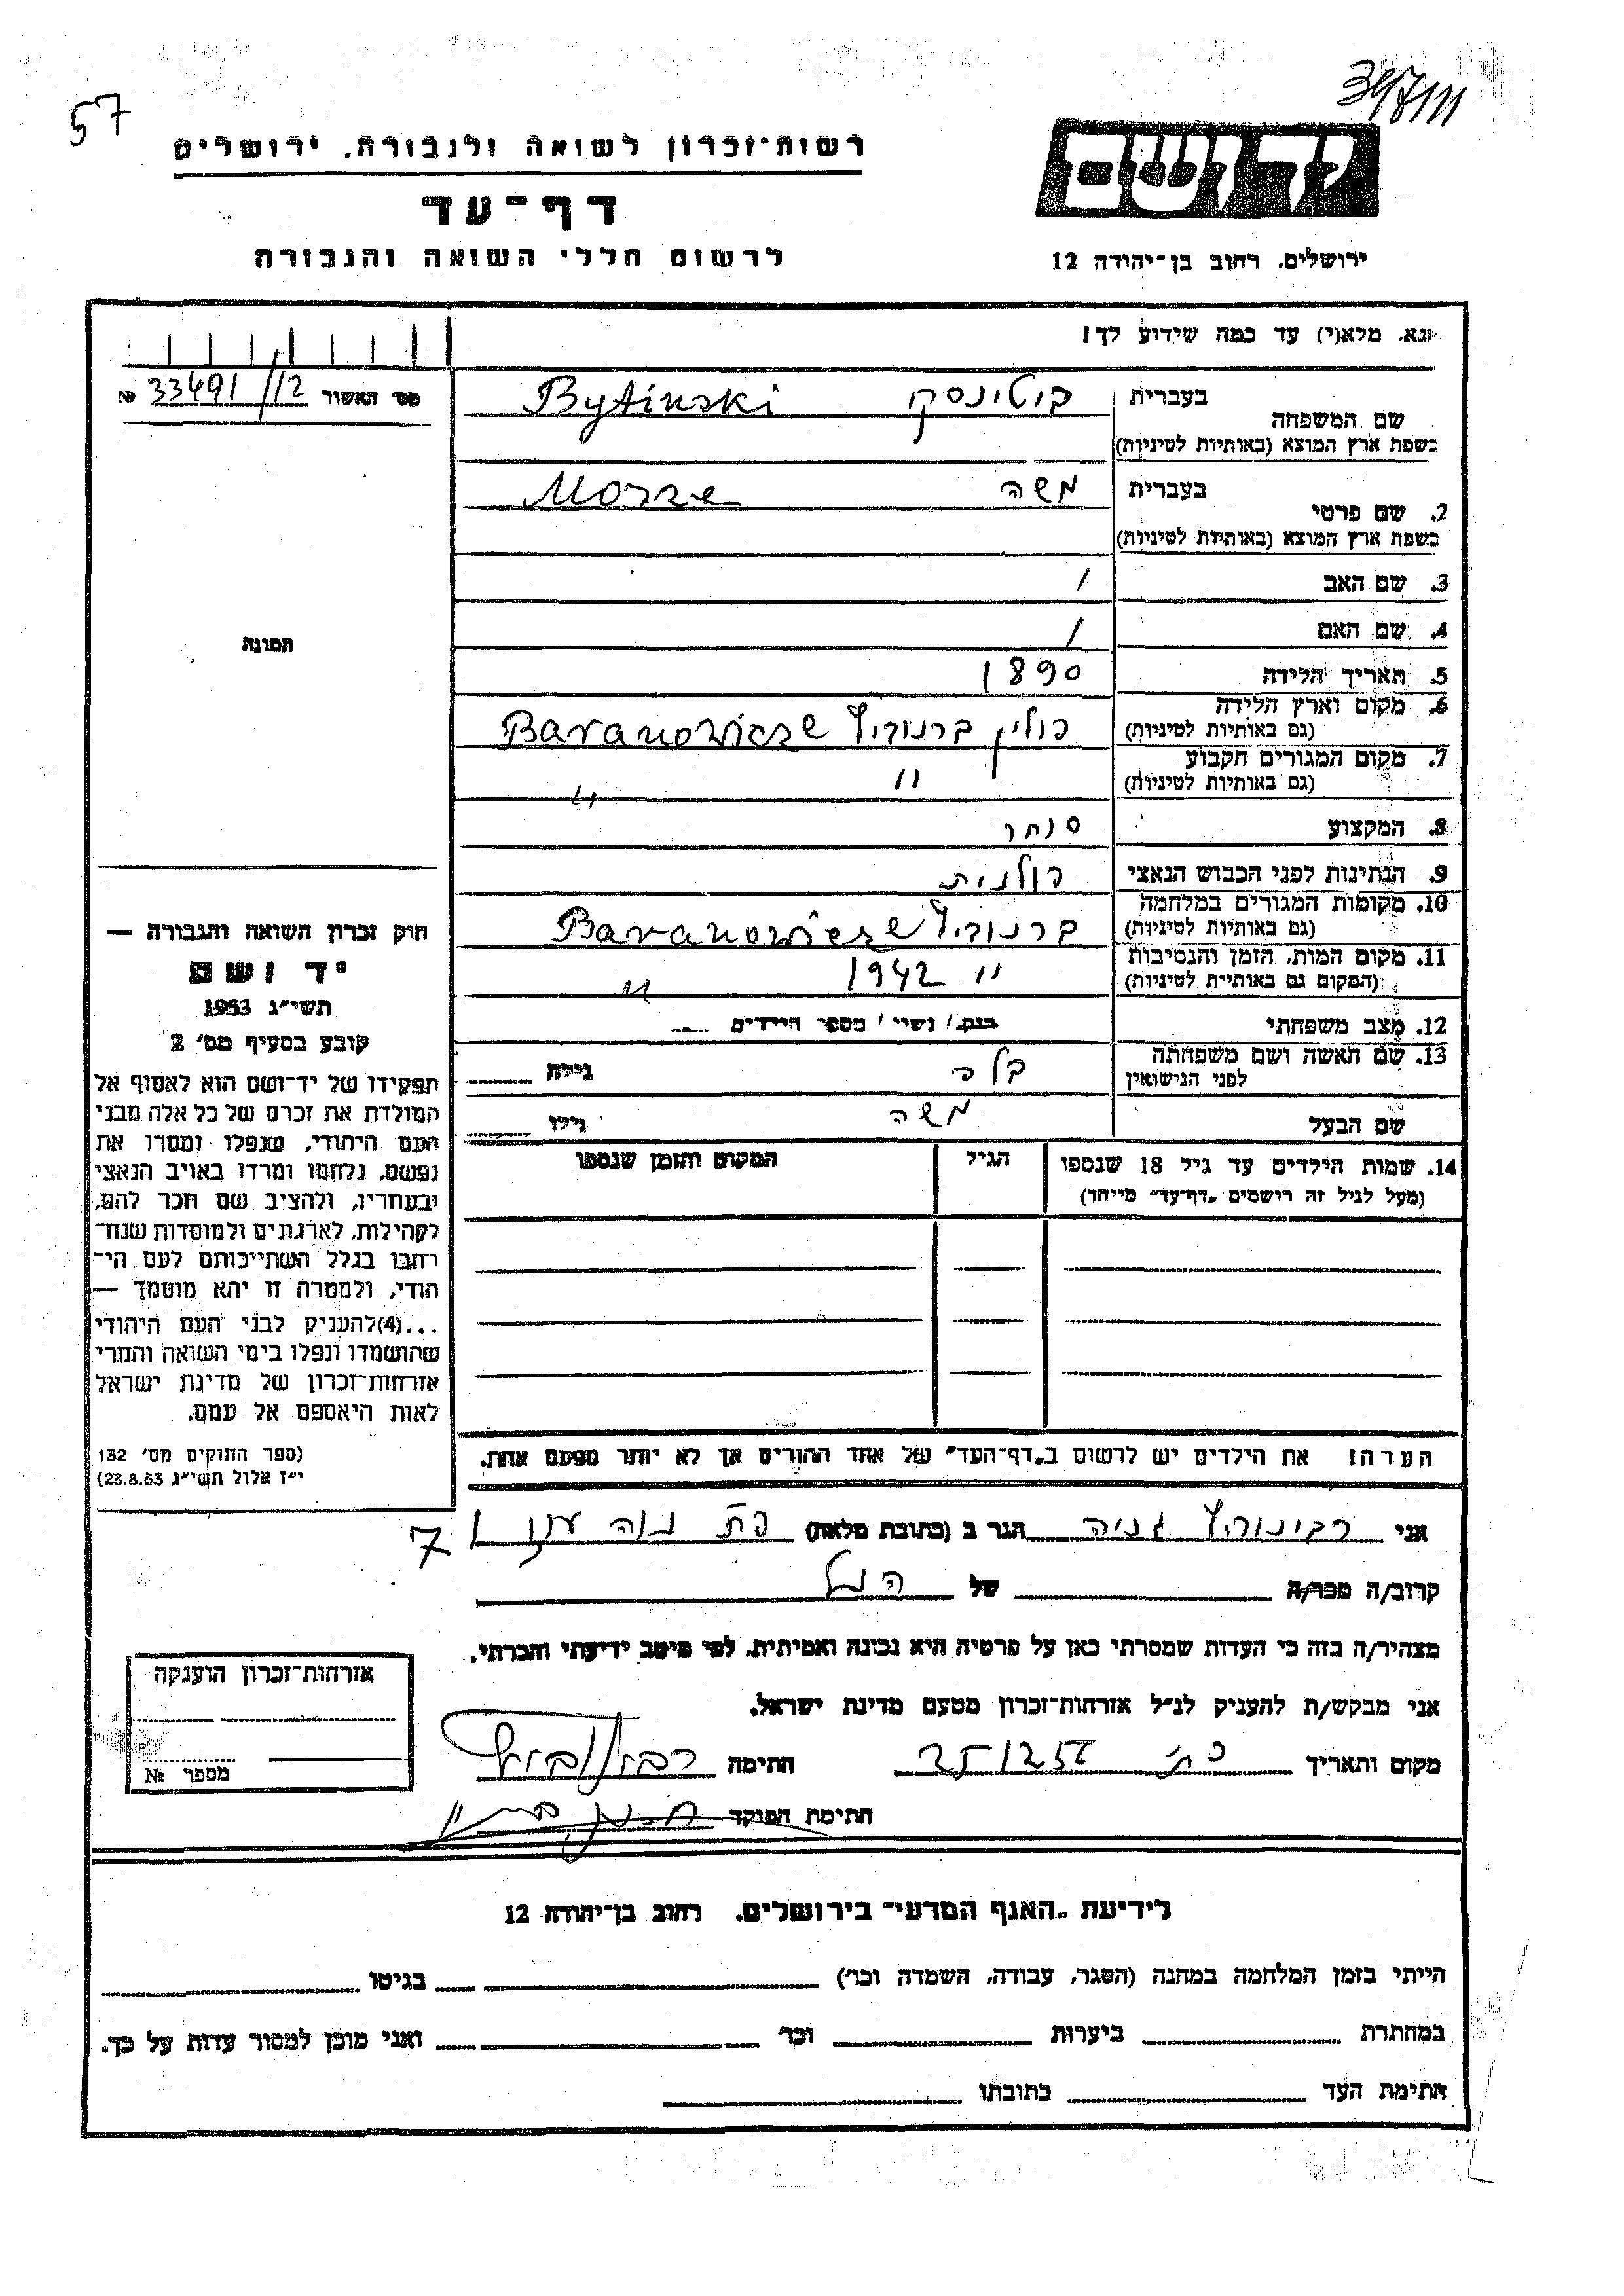 57
34/711
רשות־זכרון לשואה ולגבורה, ירושלים
ידושם
דף־עד
לרשום חללי השואה והגבורה
ירושלים, רחוב בן־יהודה 12
נא, מלא(י) עד כמה שידוע לך!
מס׳ האשור 33491/12 №
בעברית ביטינסקי Bytinski
שם המשפחה
בשפת ארץ המוצא (באותיות לטיניות)
בעברית משה Morze
2. שם פרטי
בשפת ארץ המוצא (באותיות לטיניות)
3. שם האב /
4. שם האם /
תמונה
5. תאריך הלידה 1890
6. מקום וארץ הלידה פולין ברנוביץ Baranowicze
(גם באותיות לטיניות)
7. מקום המגורים הקבוע " "
(גם באותיות לטיניות)
8. המקצוע סוחר
9. הנתינות לפני הכבוש הנאצי פולנית
10. מקומות המגורים במלחמה ברנוביץ Baranowicze
(גם באותיות לטיניות)
11. מקום המות, הזמן והנסיבות " 1942 "
(המקום גם באותיות לטיניות)
12. מצב משפחתי רווק / נשוי / מספר הילדים
13. שם האשה ושם משפחתה בלה גילה
לפני הנישואין
שם הבעל משה גילו
14. שמות הילדים עד גיל 18 שנספו הגיל המקום והזמן שנספו
(מעל לגיל זה רושמים „דף־עד” מיוחד)
חוק זכרון השואה והגבורה —
יד ושם
תשי״ג 1953
קובע בסעיף מס׳ 2
תפקידו של יד־ושם הוא לאסוף אל
המולדת את זכרם של כל אלה מבני
העם היהודי, שנפלו ומסרו את
נפשם, נלחמו ומרדו באויב הנאצי
ובעוזריו, ולהציב שם וזכר להם,
לקהילות, לארגונים ולמוסדות שנח־
רבו בגלל השתייכותם לעם הי־
הודי, ולמטרה זו יהא מוסמך —
...(4)להעניק לבני העם היהודי
שהושמדו ונפלו בימי השואה והמרי
אזרחות־זכרון של מדינת ישראל
לאות היאספם אל עמם.
(ספר החוקים מס׳ 132
י״ז אלול תשי״ג 23.8.53)
הערה! את הילדים יש לרשום ב„דף־העד” של אחד ההורים אך לא יותר מפעם אחת.
אני רבינוביץ גניה הגר ב (כתובת מלאה) פ״ת נוה עוז 7
קרוב/ה מכר/ה של הנ״ל
מצהיר/ה בזה כי העדות שמסרתי כאן על פרטיה היא נכונה ואמיתית, לפי מיטב ידיעתי והכרתי.
אני מבקש/ת להעניק לנ״ל אזרחות־זכרון מטעם מדינת ישראל.
מקום ותאריך פ״ת 25/2 56 חתימה רבינוביץ
חתימת הפוקד
אזרחות־זכרון הוענקה
מספר №
לידיעת „האגף המדעי” בירושלים, רחוב בן־יהודה 12
הייתי בזמן המלחמה במחנה (הסגר, עבודה, השמדה וכו׳) בגיטו
במחתרת ביערות וכו׳ ואני מוכן למסור עדות על כך.
חתימת העד כתובתו